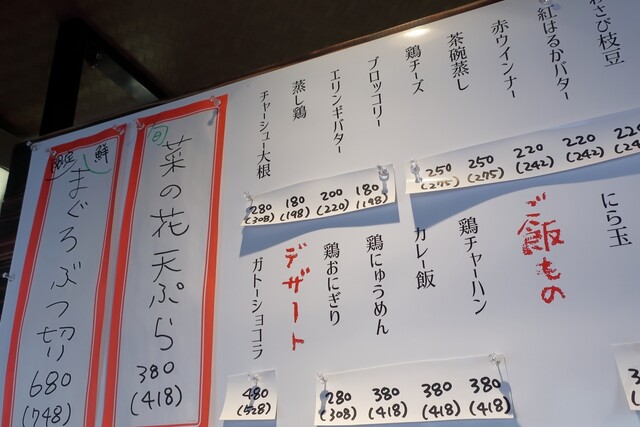 さび枝豆
220
紅はるかバター
220
(242)
赤ウインナー
220
(242)
茶碗蒸し
250
(275)
鶏チーズ
250
(275)
ブロッコリー
180
(198)
エリンギバター
200
(220)
蒸し鶏
180
(198)
チャーシュー大根
280
(308)
にら玉
ご飯もの
鶏チャーハン
380
(418)
カレー飯
380
(418)
鶏にゅうめん
380
(418)
鶏おにぎり
280
(308)
デザート
ガトーショコラ
480
(528)
菜の花天ぷら
380
(418)
鮮
まぐろぶつ切り
680
(748)